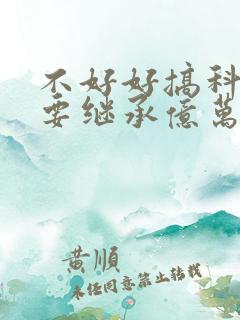 不好好搞科
要继承億萬
黄順
未经同意禁止转载